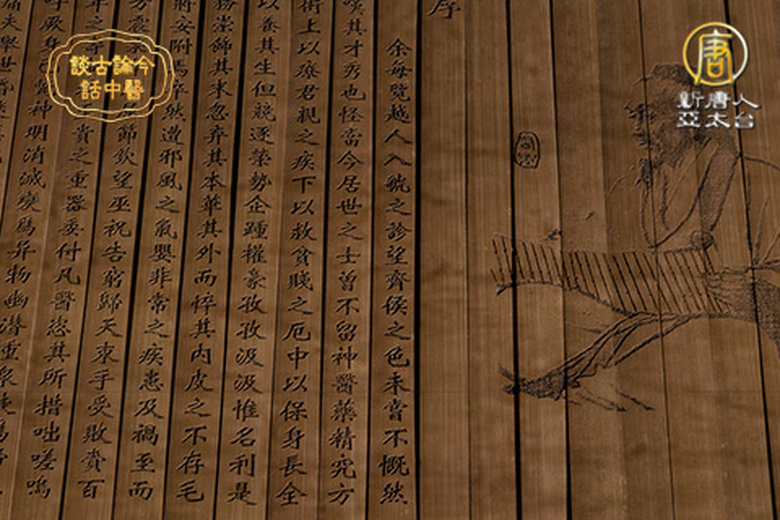 談古論今
話中醫
唐
新唐人
亞太台
序
余每覽越人入虢之診望齊侯之色未嘗不慨然
嘆其才秀也怪當今居世之士曾不留神醫藥精究方
術上以療君親之疾下以救貧賤之厄中以保身長全
以養其生但競逐榮勢企踵權豪孜孜汲汲惟名利是
務崇飾其末忽棄其本華其外而悴其內皮之不存毛
將安附焉卒然遭邪風之氣嬰非常之疾患及禍至而
方震節欽望巫祝告窮歸天束手受敗賫百
年之貴之重器委付凡醫恣其所措咄嗟嗚
呼厥身神明消滅變為異物幽潛重泉
痛夫舉世昏